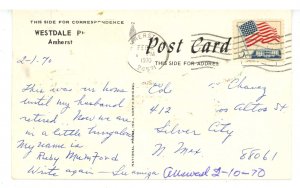 THIS SIDE FOR CORRESPONDENCE
WESTDALE
Amherst
Post Card
THIS SIDE FOR ADDRESS
FEB
1970
2-1-70
This was is home
until my husband
retired. Now we are
in a little bungalow
My name is
Ruby Mumford
Write again -
Chavez
412 Altos St
Silver City
N Mex
88061
Answered 2-10-70